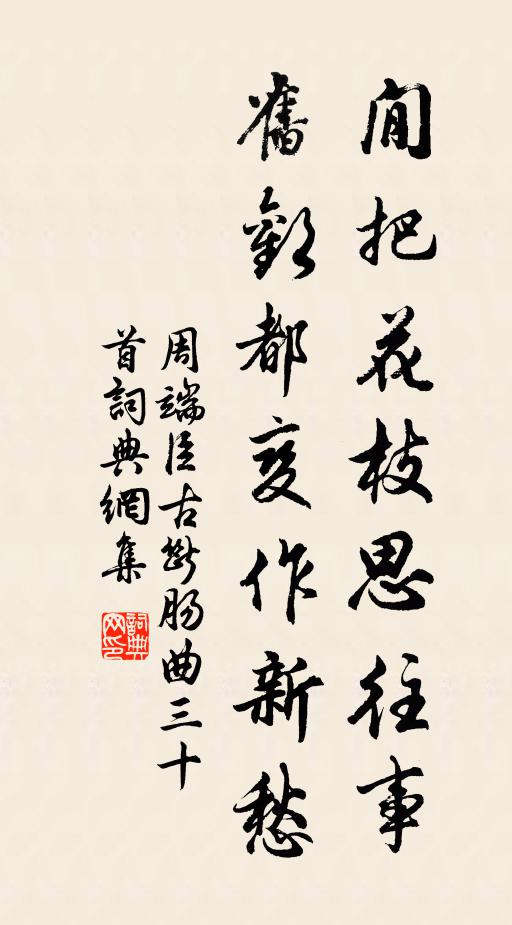 閒把花枝思往事
舊歡都变作新愁
周端臣古斷腸曲三十
首詞典網集
詞典
网印